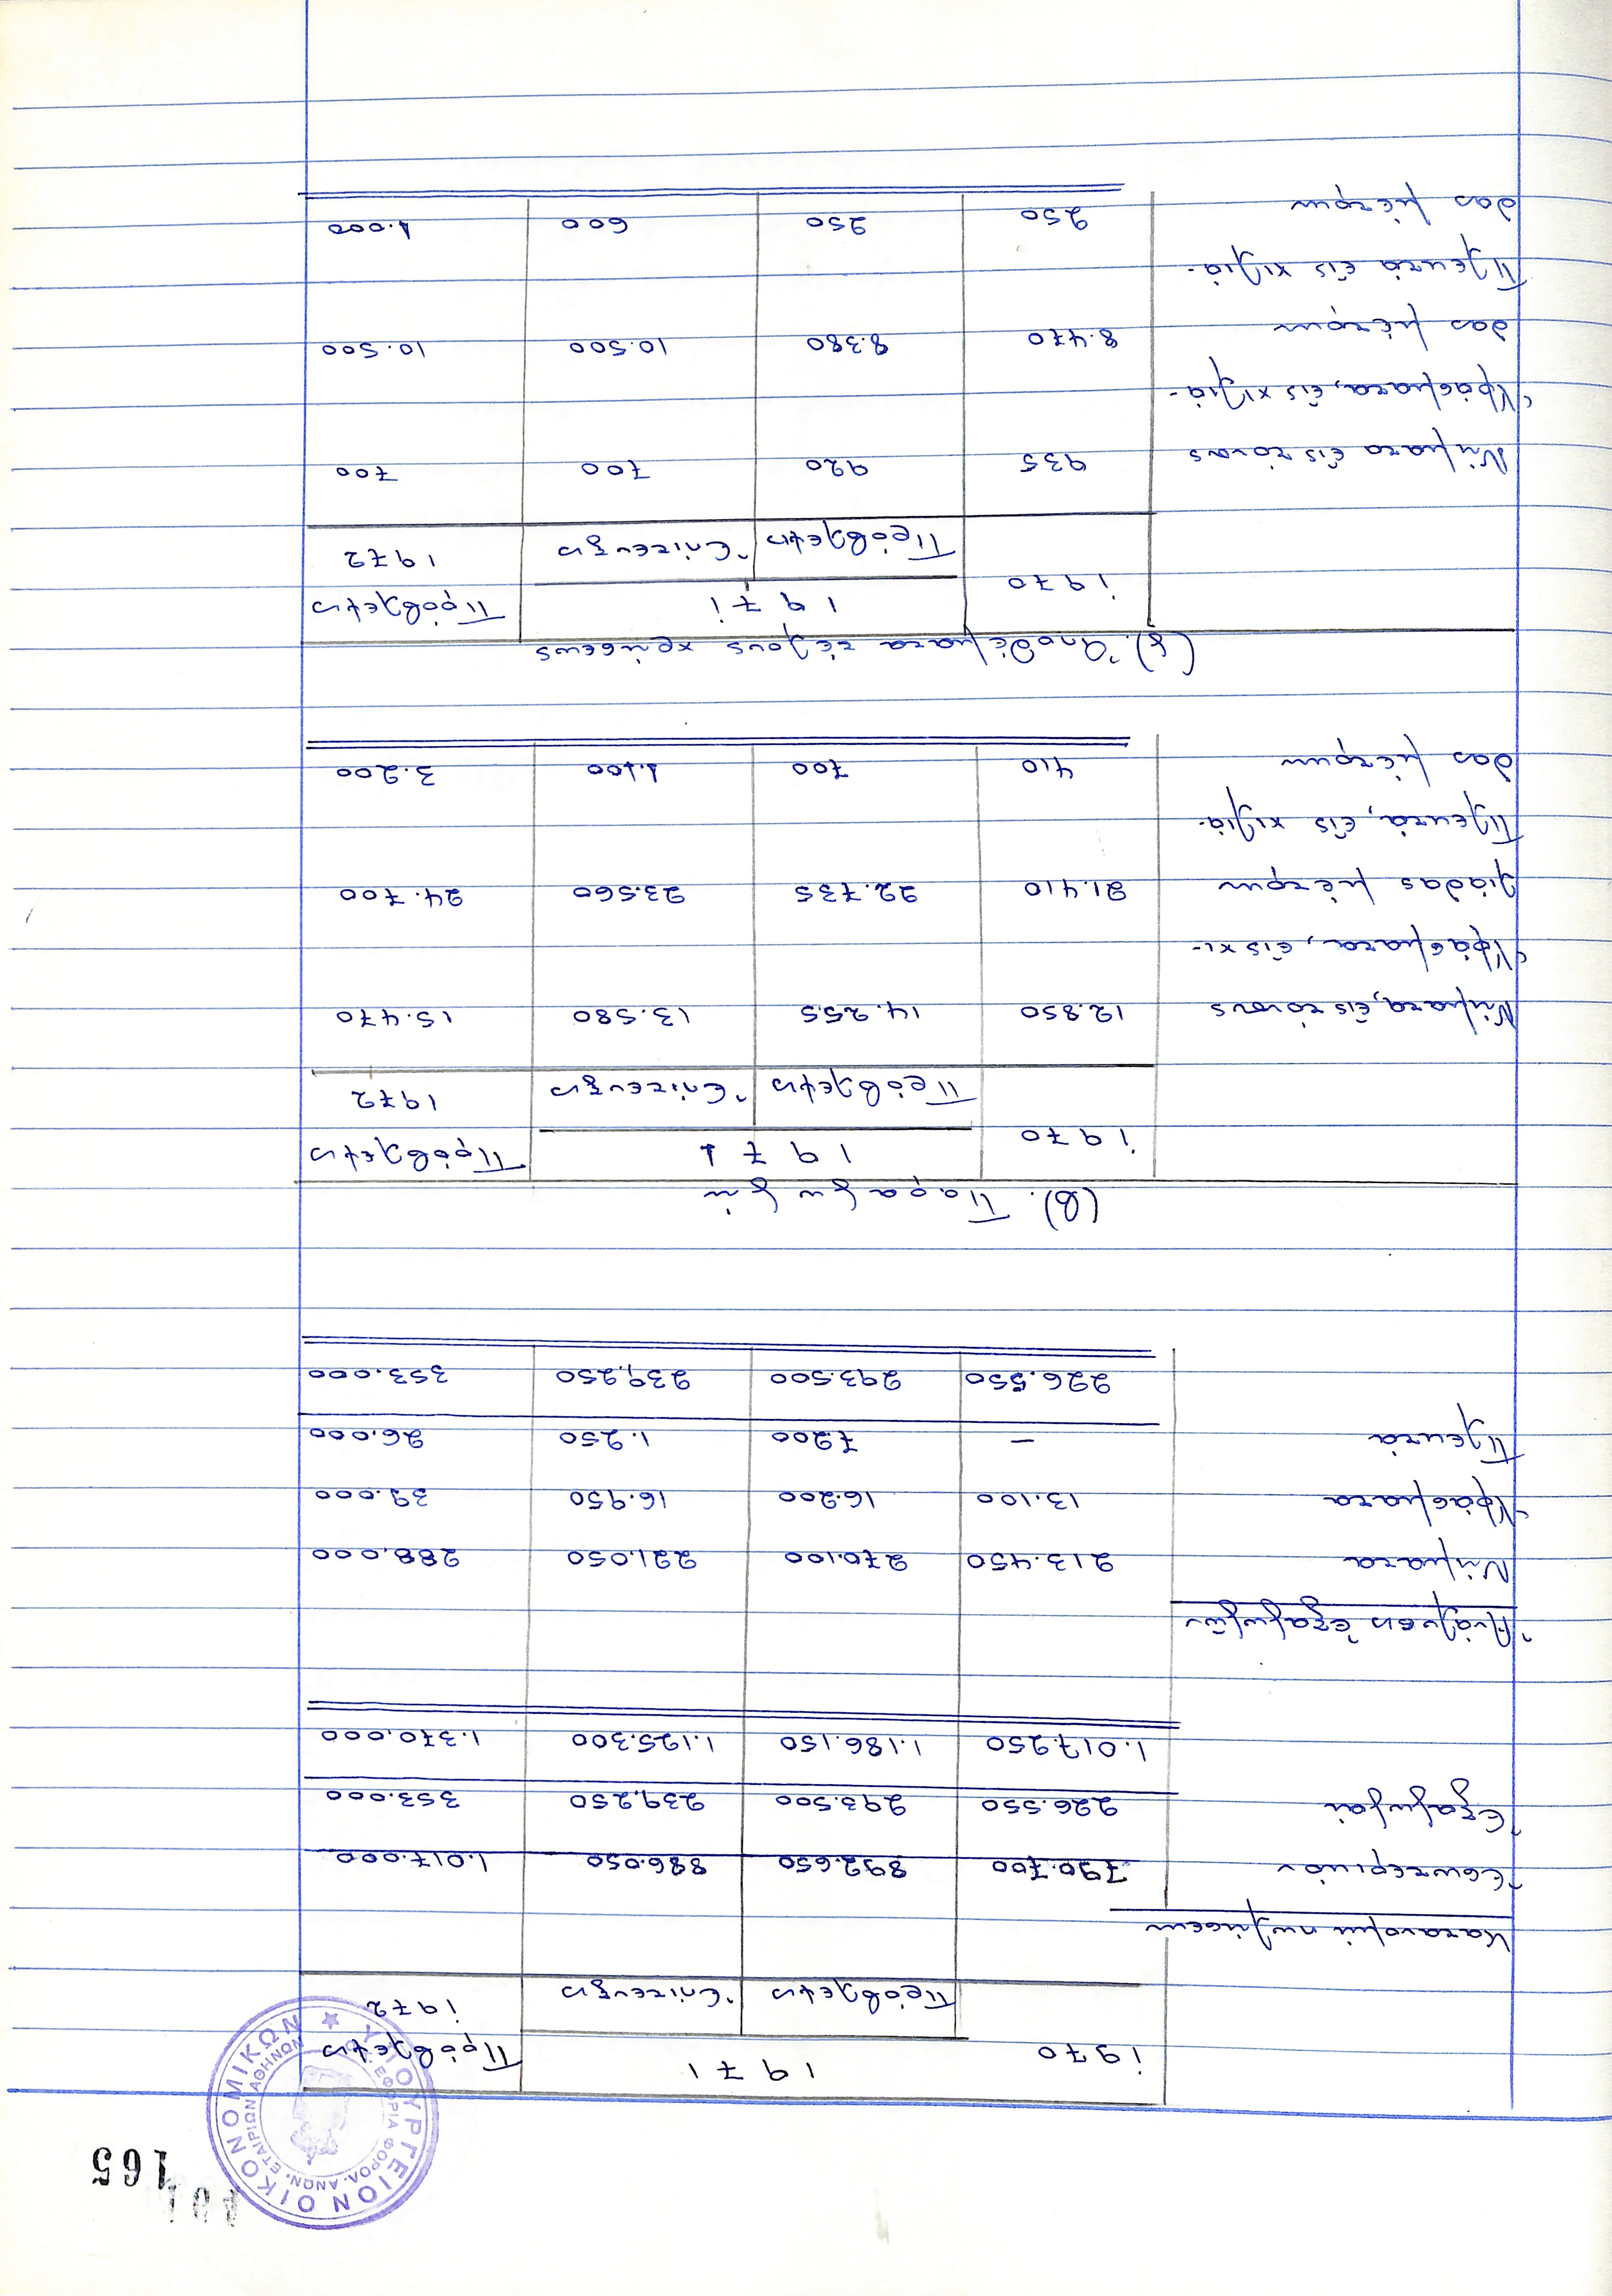 164
165
ΥΠΟΥΡΓΕΙΟΝ ΟΙΚΟΝΟΜΙΚΩΝ
ΕΦΟΡΙΑ ΦΟΡΟΛ. ΑΝΩΝ. ΕΤΑΙΡΙΩΝ ΑΘΗΝΩΝ
1970 1971 Πρόβλεψις
Πρόβλεψις Ἐπίτευξις 1972
Κατανομὴ πωλήσεων
Ἐσωτερικόν 790.700 892.650 886.050 1.017.000
Ἐξαγωγαί 226.550 293.500 239.250 353.000
1.017.250 1.186.150 1.125.300 1.370.000
Ἀνάλυσις ἐξαγωγῶν
Νήματα 213.450 270.100 221.050 288.000
Ὑφάσματα 13.100 16.200 16.950 39.000
Πλεκτά — 7.200 1.250 26.000
226.550 293.500 239.250 353.000
(β). Παραγωγή
1970 1971 Πρόβλεψις
Πρόβλεψις Ἐπίτευξις 1972
Νήματα, εἰς τόνους 12.850 14.255 13.580 15.470
Ὑφάσματα, εἰς χι-
λιάδας μέτρων 21.410 22.735 23.560 24.700
Πλεκτά, εἰς χιλιά-
δας μέτρων 410 700 1.100 3.200
(γ). Ἀποθέματα τέλους χρήσεως
1970 1971 Πρόβλεψις
Πρόβλεψις Ἐπίτευξις 1972
Νήματα εἰς τόνους 935 920 700 700
Ὑφάσματα, εἰς χιλιά-
δας μέτρων 8.470 8.380 10.500 10.500
Πλεκτά εἰς χιλιά-
δας μέτρων 250 250 600 1.000